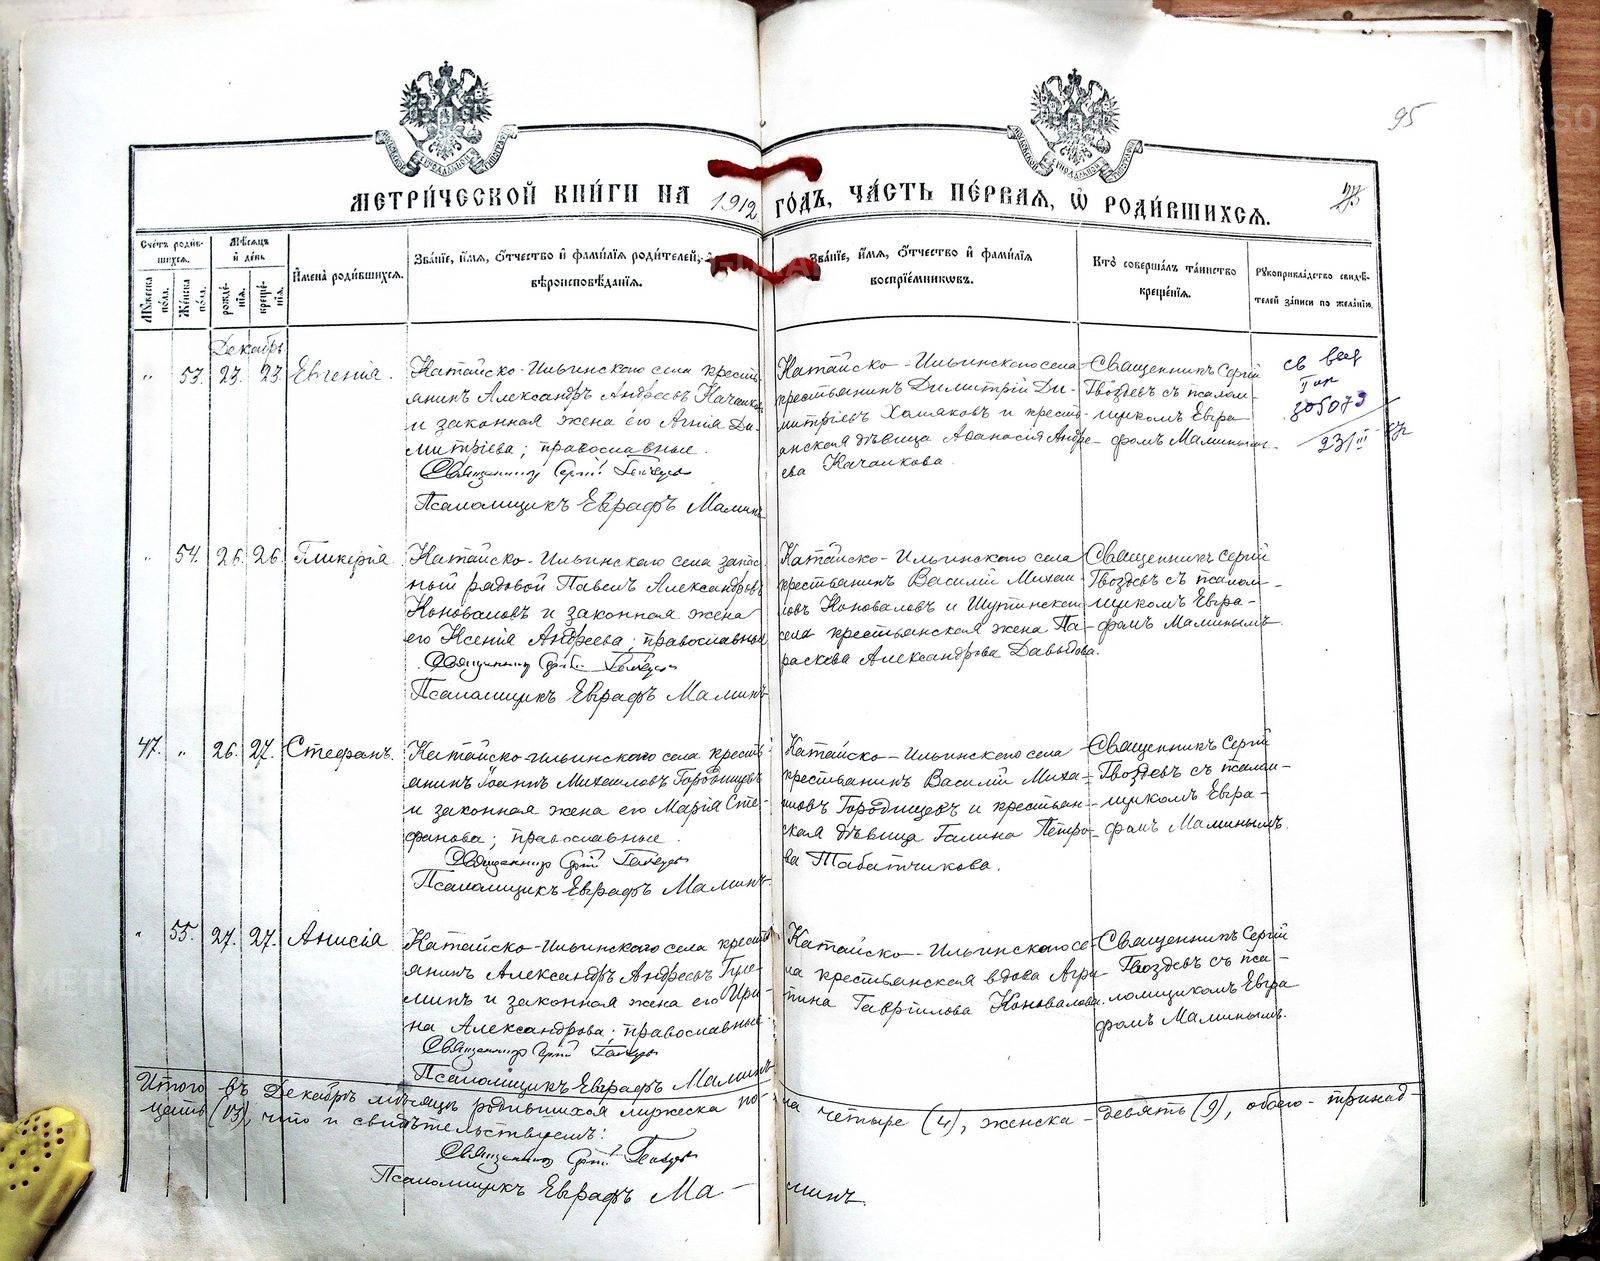 95
МЕТРИЧЕСКОЙ КНИГИ НА 1912 ГОДЪ, ЧАСТЬ ПЕРВАЯ, Ѡ РОДИВШИХСѦ.
Счетъ родив-
шихсѧ.
Мѣсѧцъ
и день
Мꙋжеска
пола.
Женска
пола.
рожде-
нїѧ.
креще-
нїѧ.
Имена родившихсѧ.
Званїе, имѧ, ѿчество и фамилїѧ родителей, и
вѣроисповѣданїѧ.
Званїе, имѧ, ѿчество и фамилїѧ
воспрїемниковъ.
Кто совершалъ таинство
крещенїѧ.
Рꙋкоприкладство свидѣ-
телей записи по желанїю.
Декабрь
" 53. 23. 23. Евгенія.
Катайско-Ильинскаго села кресть
янинъ Александръ Андреевъ Качалков
и законная жена его Агнія Ди-
митріева; православные.
Священникъ Сергій Гвоздевъ
Псаломщикъ Евграфъ Малинъ
Катайско-Ильинскаго села
крестьянинъ Димитрій Ди-
митріевъ Хомяковъ и кресть-
янская дѣвица Аѳанасія Андре-
ева Качалкова.
Священникъ Сергій
Гвоздевъ съ псалом-
щикомъ Евгра-
фомъ Малинымъ.
св выд
305073
23/III
" 54. 26. 26. Гликерія
Катайско-Ильинскаго села запас
ный рядовой Павелъ Александровъ
Коноваловъ и законная жена
его Ксенія Андреева; православные
Священникъ Сергій Гвоздевъ
Псаломщикъ Евграфъ Малинъ
Катайско-Ильинскаго села
крестьянинъ Василій Михаи
ловъ Коноваловъ и Шутинскаго
села крестьянская жена Па-
раскева Александрова Давыдова.
Священникъ Сергій
Гвоздевъ съ псалом-
щикомъ Евгра-
фомъ Малинымъ
47. " 26. 27. Стефанъ.
Катайско-Ильинскаго села кресть
янинъ Іоаннъ Михаиловъ Городищевъ
и законная жена его Марія Сте-
фанова; православные.
Священникъ Сергій Гвоздевъ
Псаломщикъ Евграфъ Малинъ
Катайско-Ильинскаго села
крестьянинъ Василій Миха-
иловъ Городищевъ и крестьян-
ская дѣвица Галина Петро-
ва Табатчикова.
Священникъ Сергій
Гвоздевъ съ псалом-
щикомъ Евгра-
фомъ Малинымъ.
" 55. 27. 27. Анисія
Катайско-Ильинскаго села кресть
янинъ Александръ Андреевъ Гуле-
минъ и законная жена его Ири-
на Александрова; православные
Священникъ Сергій Гвоздевъ
Псаломщикъ Евграфъ Малинъ
Катайско-Ильинскаго се-
ла крестьянская вдова Агри-
пина Гавріилова Коновалова.
Священникъ Сергій
Гвоздевъ съ пса-
ломщикомъ Евгра
фомъ Малинымъ.
Итого въ Декабрѣ мѣсяцѣ родившихся мужеска по-ла четыре (4), женска - девять (9), обоего - тринад-
цать (13), что и свидѣтельствуемъ:
Священникъ Сергій Гвоздевъ
Псаломщикъ Евграфъ Ма-линъ.